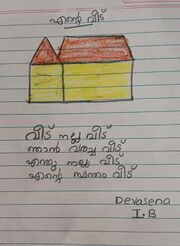 എന്റെ വീട്
വീട് നല്ല വീട്
ഞാൻ വരച്ച വീട്
എന്തു നല്ല വീട്
എന്റെ സ്വന്തം വീട്
Devasena
I.B